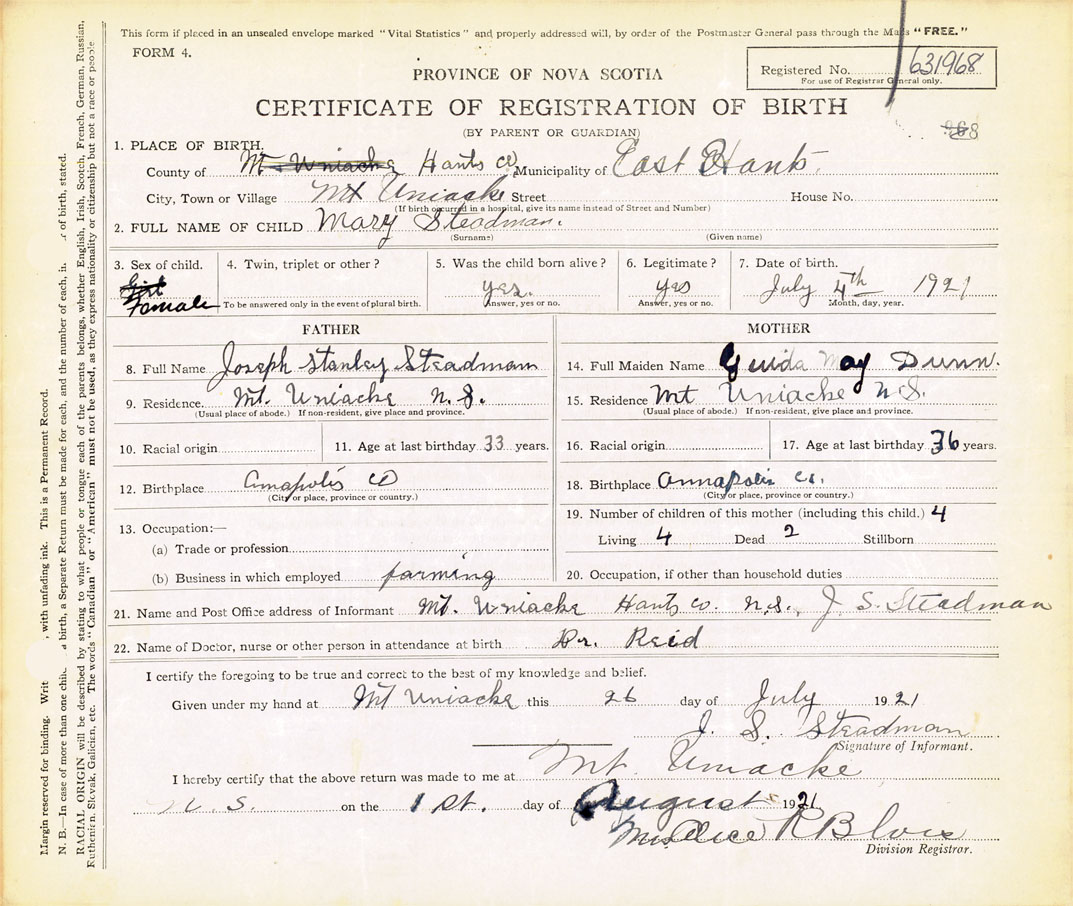 This form if placed in an unsealed envelope marked "Vital Statistics" and properly addressed will, by order of the Postmaster General pass through the Mails "FREE."
FORM 4.
Registered No. 631968
For use of Registrar General only.
PROVINCE OF NOVA SCOTIA
CERTIFICATE OF REGISTRATION OF BIRTH
(BY PARENT OR GUARDIAN)
968
1. PLACE OF BIRTH.
County of Mt Uniacke Hants Co Municipality of East Hants.
City, Town or Village Mt Uniacke Street House No.
(If birth occurred in a hospital, give its name instead of Street and Number)
2. FULL NAME OF CHILD Mary Steadman.
(Surname) (Given name)
3. Sex of child. 4. Twin, triplet or other? 5. Was the child born alive? 6. Legitimate? 7. Date of birth.
Girl
Female yes. yes July 4th 1921
To be answered only in the event of plural birth. Answer, yes or no. Answer, yes or no. Month, day, year.
FATHER
8. Full Name Joseph Stanley Steadman
9. Residence. Mt. Uniacke N.S.
(Usual place of abode.) If non-resident, give place and province.
10. Racial origin 11. Age at last birthday 33 years.
12. Birthplace Annapolis Co
(City or place, province or country.)
13. Occupation:—
(a) Trade or profession
(b) Business in which employed farming
MOTHER
14. Full Maiden Name Guida May Dunn.
15. Residence Mt Uniacke N.S.
(Usual place of abode.) If non-resident, give place and province.
16. Racial origin 17. Age at last birthday 36 years.
18. Birthplace Annapolis Co.
(City or place, province or country.)
19. Number of children of this mother (including this child.) 4
Living 4 Dead 2 Stillborn
20. Occupation, if other than household duties
21. Name and Post Office address of Informant Mt. Uniacke Hants Co. N.S. J. S. Steadman
22. Name of Doctor, nurse or other person in attendance at birth Dr. Reid
I certify the foregoing to be true and correct to the best of my knowledge and belief.
Given under my hand at Mt Uniacke this 26 day of July 1921
J. S. Steadman
Signature of Informant.
I hereby certify that the above return was made to me at Mt. Uniacke
N.S. on the 1 st. day of August 1921
Mrs Alice R Blois
Division Registrar.
Margin reserved for binding. Writ , with unfading ink. This is a Permanent Record.
N. B.—In case of more than one chil a birth, a Separate Return must be made for each, and the number of each, in of birth, stated.
RACIAL ORIGIN will be described by stating to what people or tongue each of the parents belongs, whether English, Irish, Scotch, French, German, Russian,
Ruthenian, Slovak, Galician, etc. The words "Canadian" or "American" must not be used, as they express nationality or citizenship but not a race or people